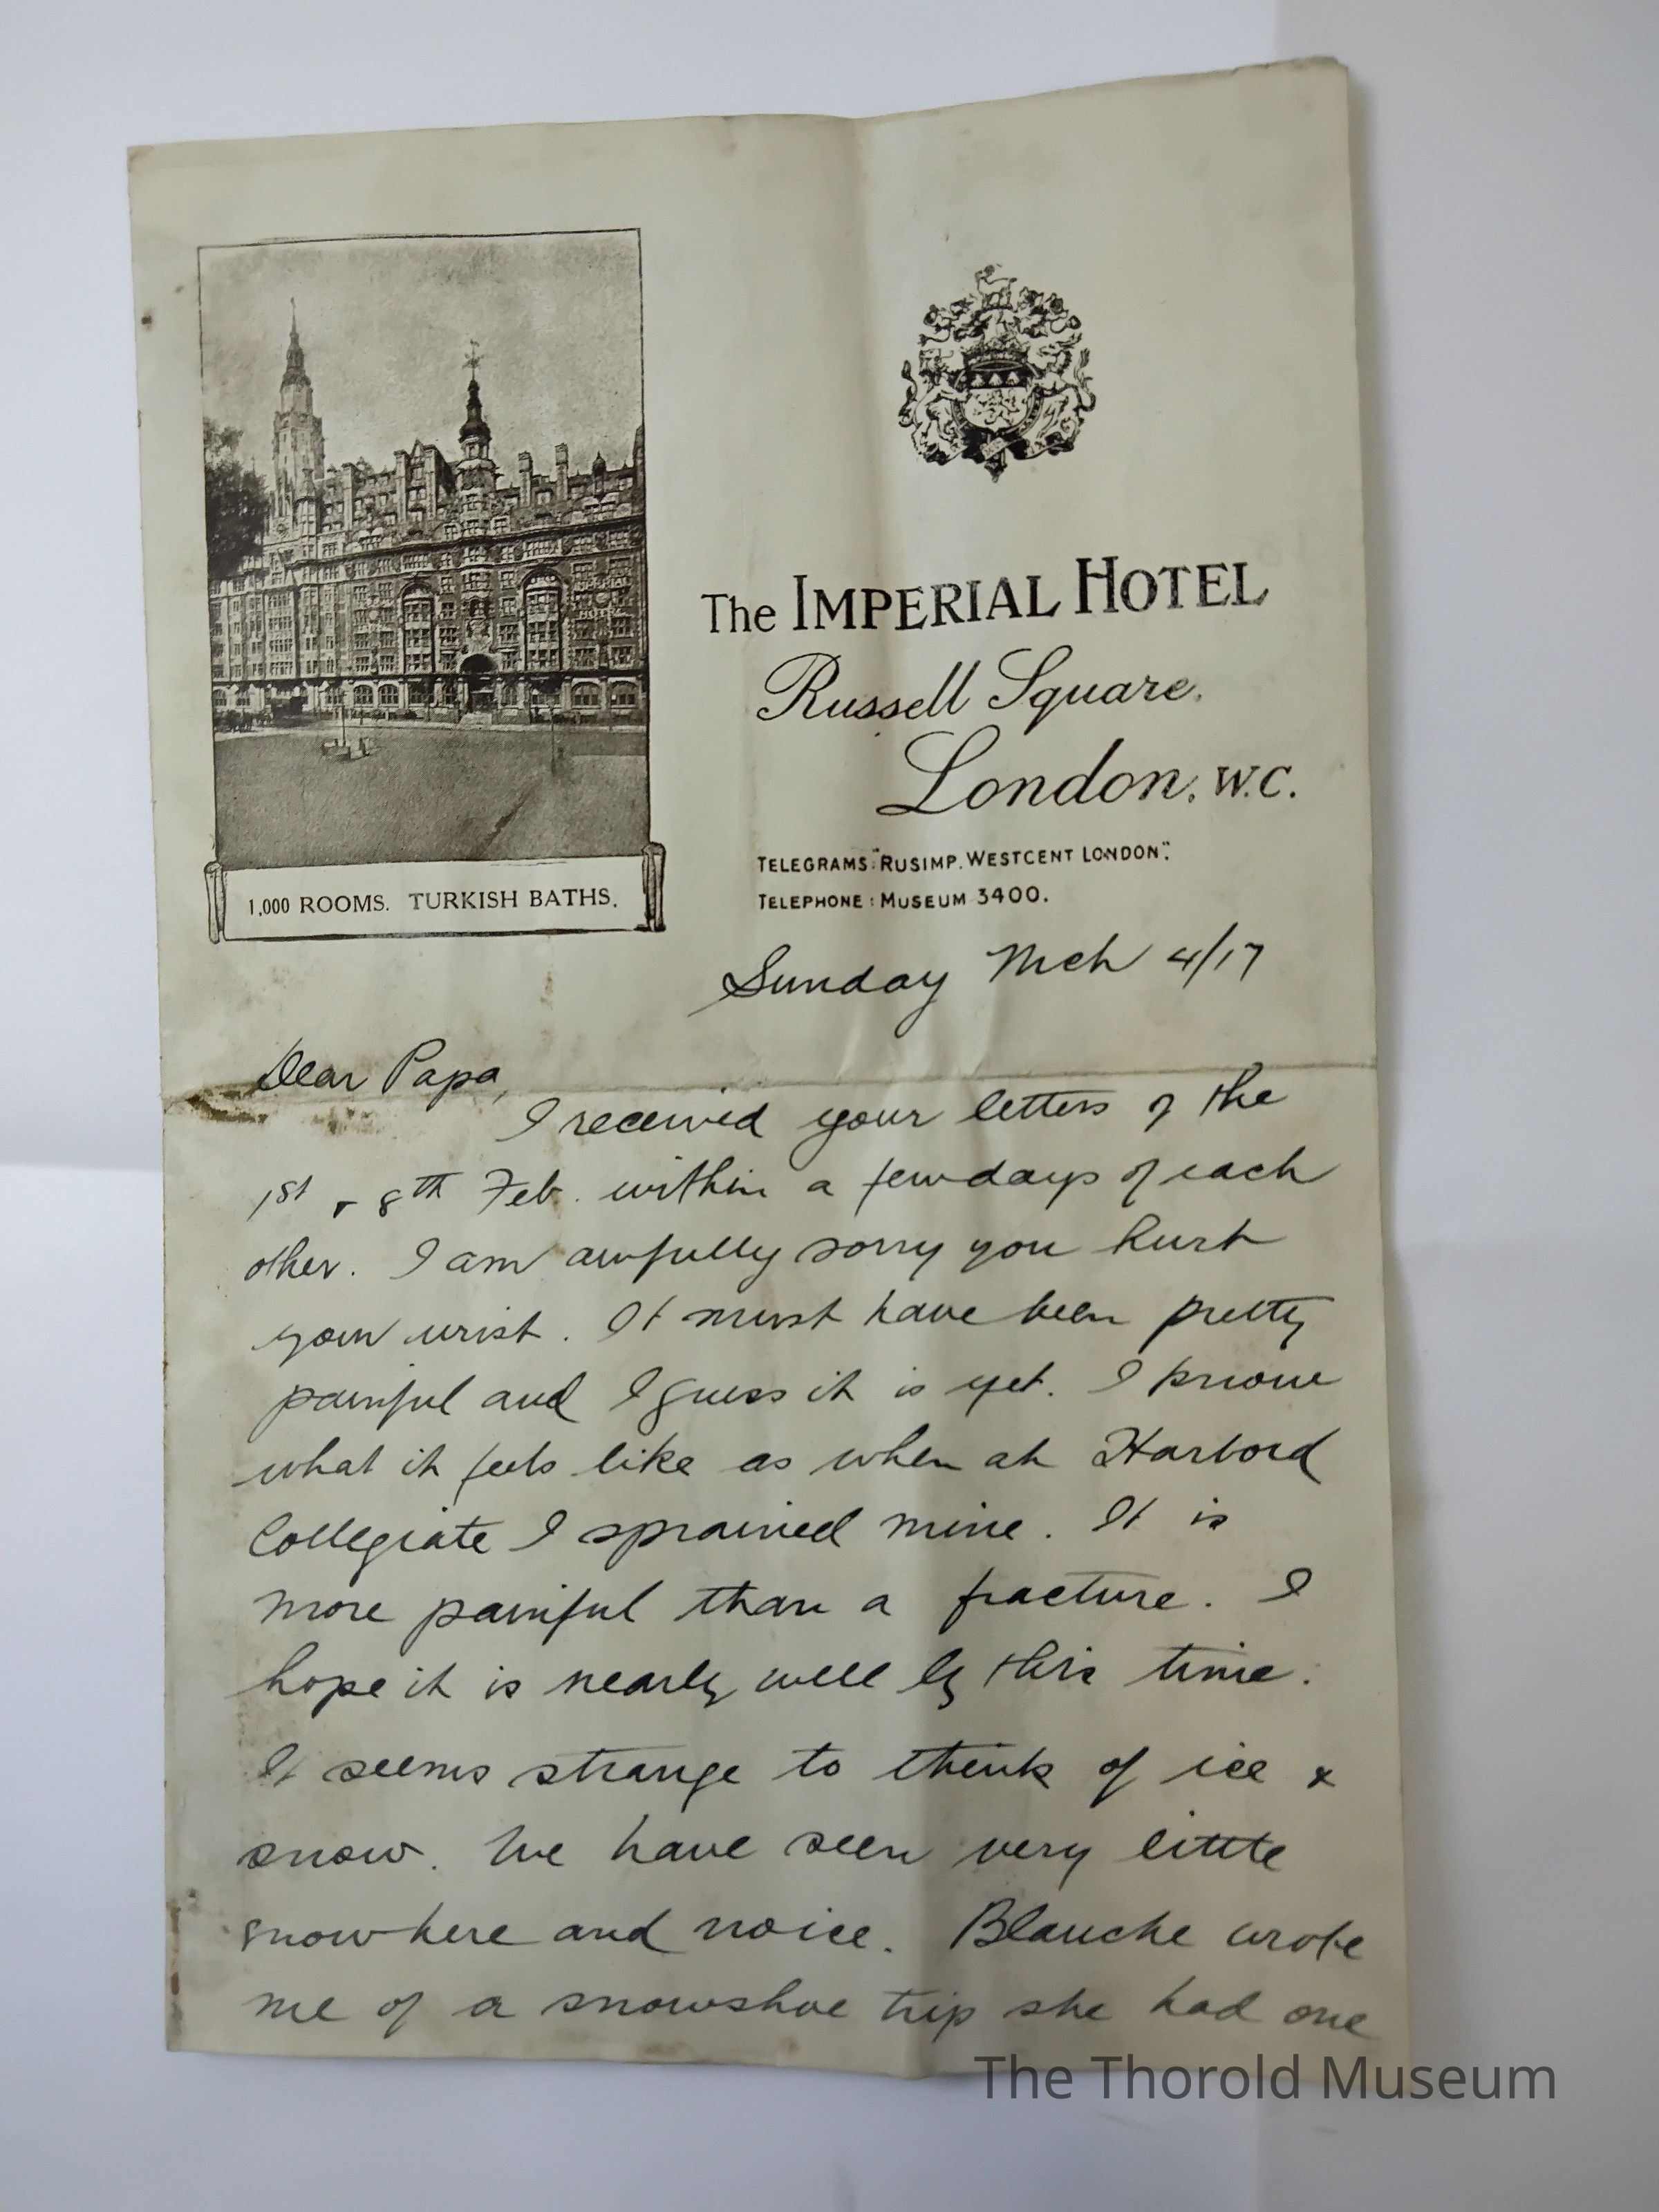 The IMPERIAL HOTEL
Russell Square,
London, W.C.
TELEGRAMS: "RUSIMP. WESTCENT LONDON".
TELEPHONE: MUSEUM 3400.
1,000 ROOMS. TURKISH BATHS.
Sunday Mch 4/17
Dear Papa,
I received your letters of the
1st & 8th Feb. within a few days of each
other. I am awfully sorry you hurt
your wrist. It must have been pretty
painful and I guess it is yet. I know
what it feels like as when at Harbord
Collegiate I sprained mine. It is
more painful than a fracture. I
hope it is nearly well by this time.
It seems strange to think of ice &
snow. We have seen very little
snow here and no ice. Blanche wrote
me of a snowshoe trip she had one
The Thorold Museum